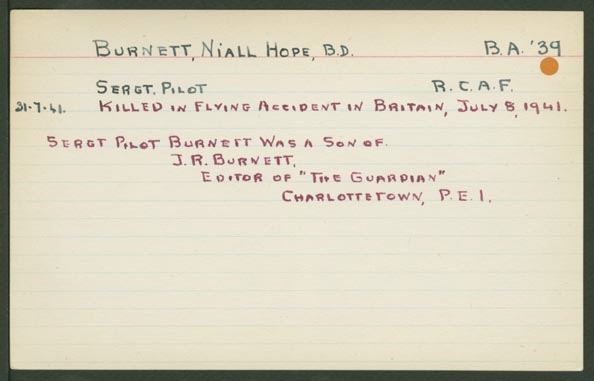 BURNETT, NIALL HOPE, B.D. B.A. '39
SERGT. PILOT R.C.A.F.
31-7-41. KILLED IN FLYING ACCIDENT IN BRITAIN, JULY 8, 1941.
SERGT PILOT BURNETT WAS A SON OF.
J.R. BURNETT,
EDITOR OF "THE GUARDIAN"
CHARLOTTETOWN, P.E.I.